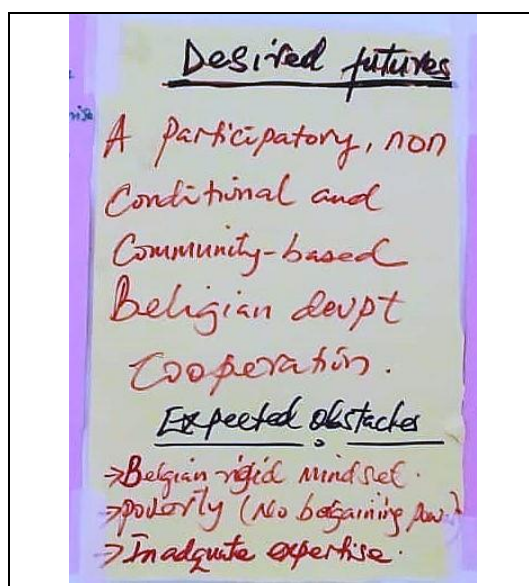 Desired futures
A participatory, non
Conditional and
Community-based
Beligian devpt
Cooperation.
Expected obstacles
→Belgian rigid mindset.
→poverty (No bagaining power)
→Inadquate expertise.